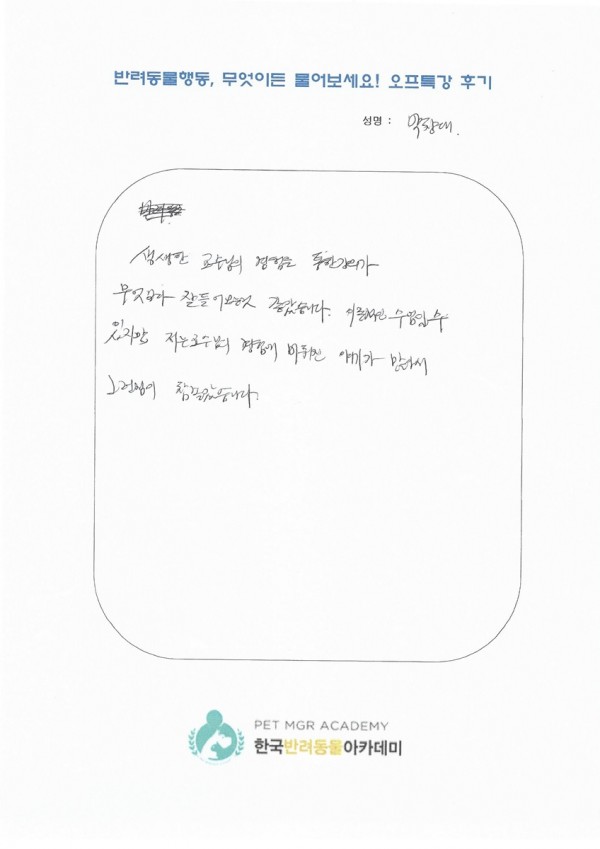 반려동물행동, 무엇이든 물어보세요! 오프특강 후기
성명 :
생생한 교수님의 경험을 통한강의가
무엇보다 잘들어오는것 좋았습니다. 이론적인 수업일수
있지만 저는교수님의 경험에 바뀌진 얘기가 많아서
그점이 참좋았습니다.
PET MGR ACADEMY
한국반려동물아카데미